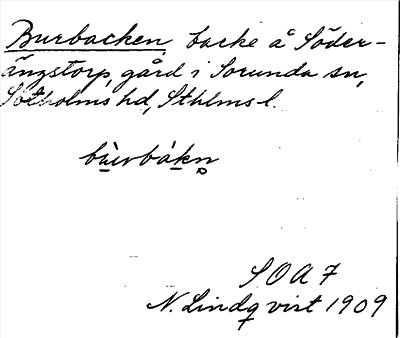 Burbacken, backe å Söder-
ängstorp, gård i Sorunda sn,
Sotholms hd, Sthlms l.
bu̇rbàkn̥
S O A 7
N. Lindqvist 1909